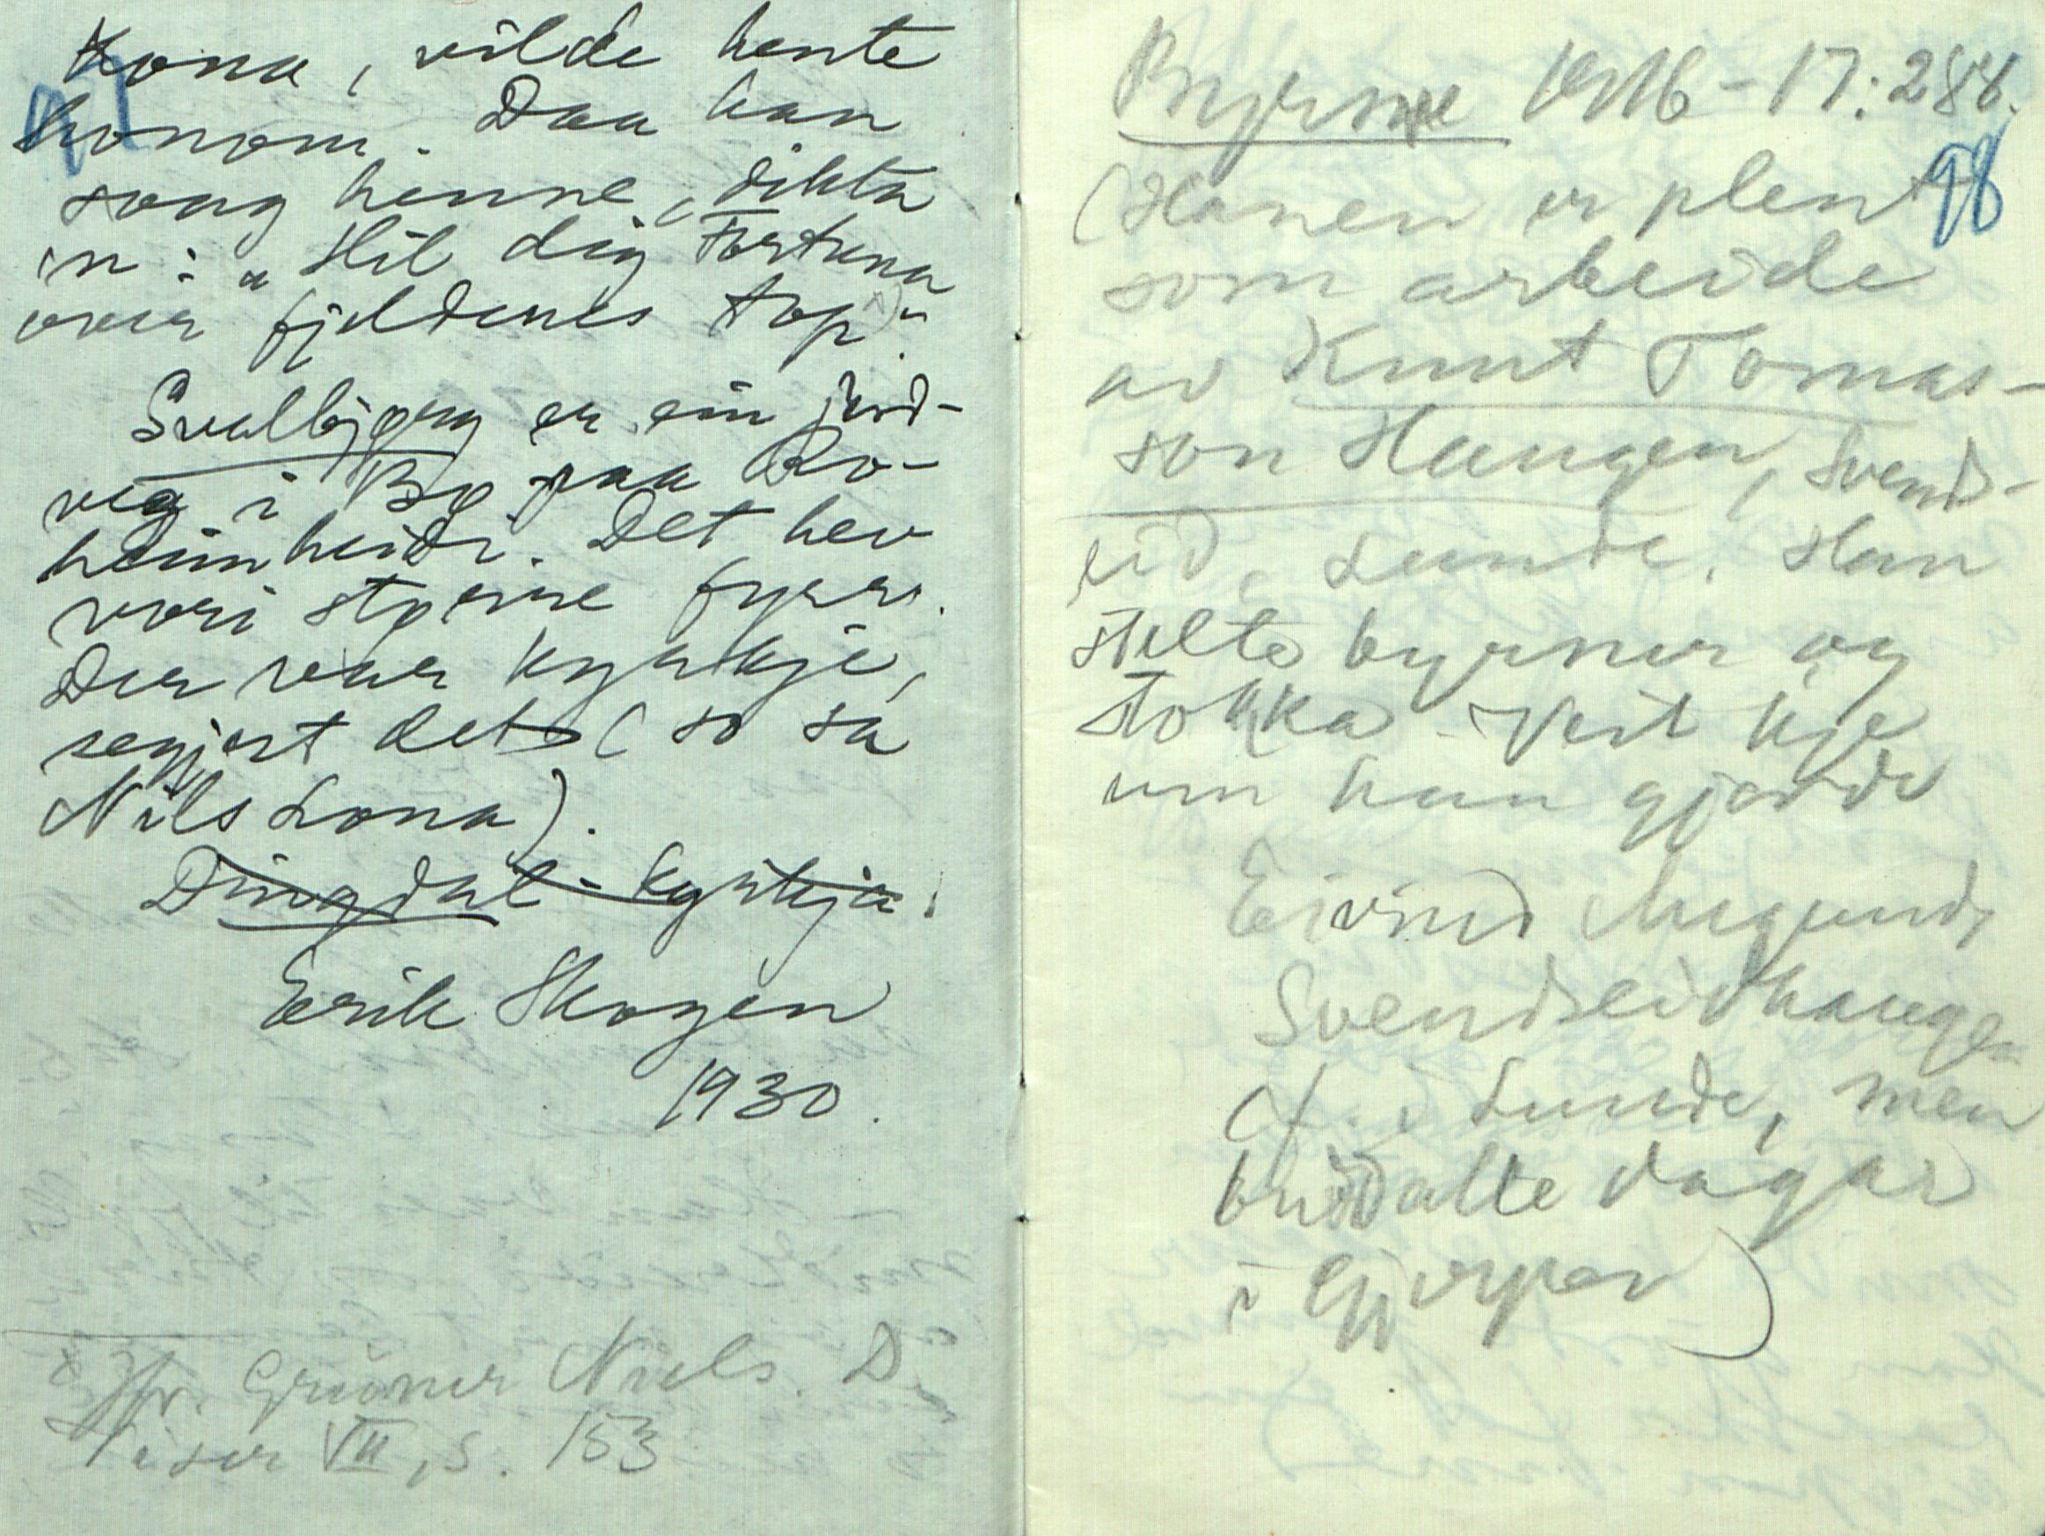 97
Kona, vilde hente
honom. Daa han
saag henne, dikta
'n: "Hil dig Fortuna
over fjeldenes top x)".
Svalbjørg er ein jord-
veg i Bø paa Ro-
heimheidi. Det hev
vori større fyrr.
Der var kyrkje,
segjest det (so sa
Nils Lona).
Dingdal-kyrkja.
Erik Skogen
1930.
x Jfr. Grüner Niels. D.
Viser VII, s. 153
Byrsne 1816-17: 288.
98
(Hanen er plent
som arbeide
av Knut Tomas-
son Haugen, Svends-
eid, Lunde. Han
stelte byrsner og
stokka. Veit kje
um han gjorde
Eivind Augunds.
Svendseidhaugen
i Lunde, men
budde alle dagar
i Gjerpen)